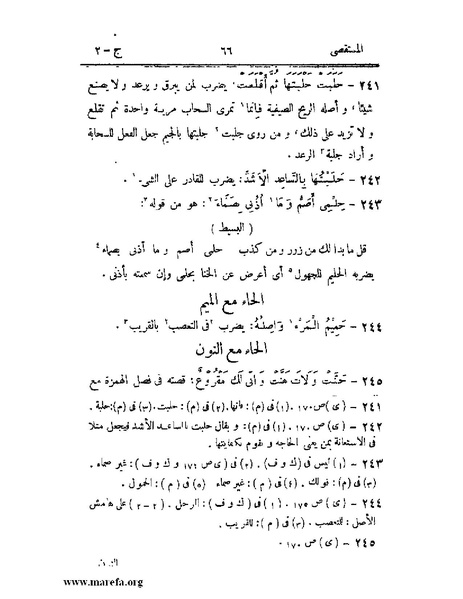 المستقصى ٦٦ ج - ٢
٢٤١ - حَلَبَتْ حَلْبَتَهَا ثُمَّ أَقْلَعَتْ: يضرب لمن يبرق و يرعد و لا يصنع
شيئا، و أصله الريح الصيفية فإنها١ تمرى السحاب مرية واحدة ثم تقلع
و لا تزيد على ذلك، و من روى جلبت٢ جلبتها بالجيم جعل الفعل للسحابة
و أراد جلبة٣ الرعد.
٢٤٢ - حَلَبْتُهَا بِالسَّاعِدِ الْأَشَدِّ: يضرب للقادر على الشىء١.
٢٤٣ - حِلْمِى أَصَمُّ وَ مَا١ أُذُنِى بِصَمَّاءَ٢: هو من قوله٣:
( البسيط )
قل ما بدا لك من زور و من كذب حلمى أصم و ما أذنى بصماء٤
يضربه الحليم للجهول٥ أى أعرض عن الخنا بحلمى و إن سمعته بأذنى.
الحاء مع الميم
٢٤٤ - حَمِيْمُ الْمَرْءِ١ وَاصِلُهُ: يضرب٢ فى التعصب٢ بالقريب٣.
الحاء مع النون
٢٤٥ - حَنَّتْ وَ لَاتَ هَنَّتْ وَ أَنَّى لَكَ مَقْرُوْعٌ: قصته فى فصل الهمزة مع
٢٤١ - (ى) ص ١٧٠. (١) فى (م): فانها. (٢) فى (م): حلبت. (٣) فى (م): حلبة.
٢٤٢ - (ى) ص ١٧٠. (١) فى (م): و يقال حلبت بالساعد الأشد فيجعل مثلا
فى الاستعانة بمن يعنى الحاجة و يقوم بكفايتها.
٢٤٣ - (١) ليس فى (ك و ف). (٢) فى (ى ص ١٧٦ و ك و ف): غير صماء.
(٣) فى (م): قولك. (٤) فى (م): غير صماء (٥) فى (م): الجهول.
٢٤٤ - (ى) ص ١٧٥. (١) فى (ك و ف): الرجل. (٢-٢) على هامش
الأصل: للتعصب. (٣) فى (م): للقريب.
٢٤٥ - (ى) ص ١٧٠.
النون
www.marefa.org